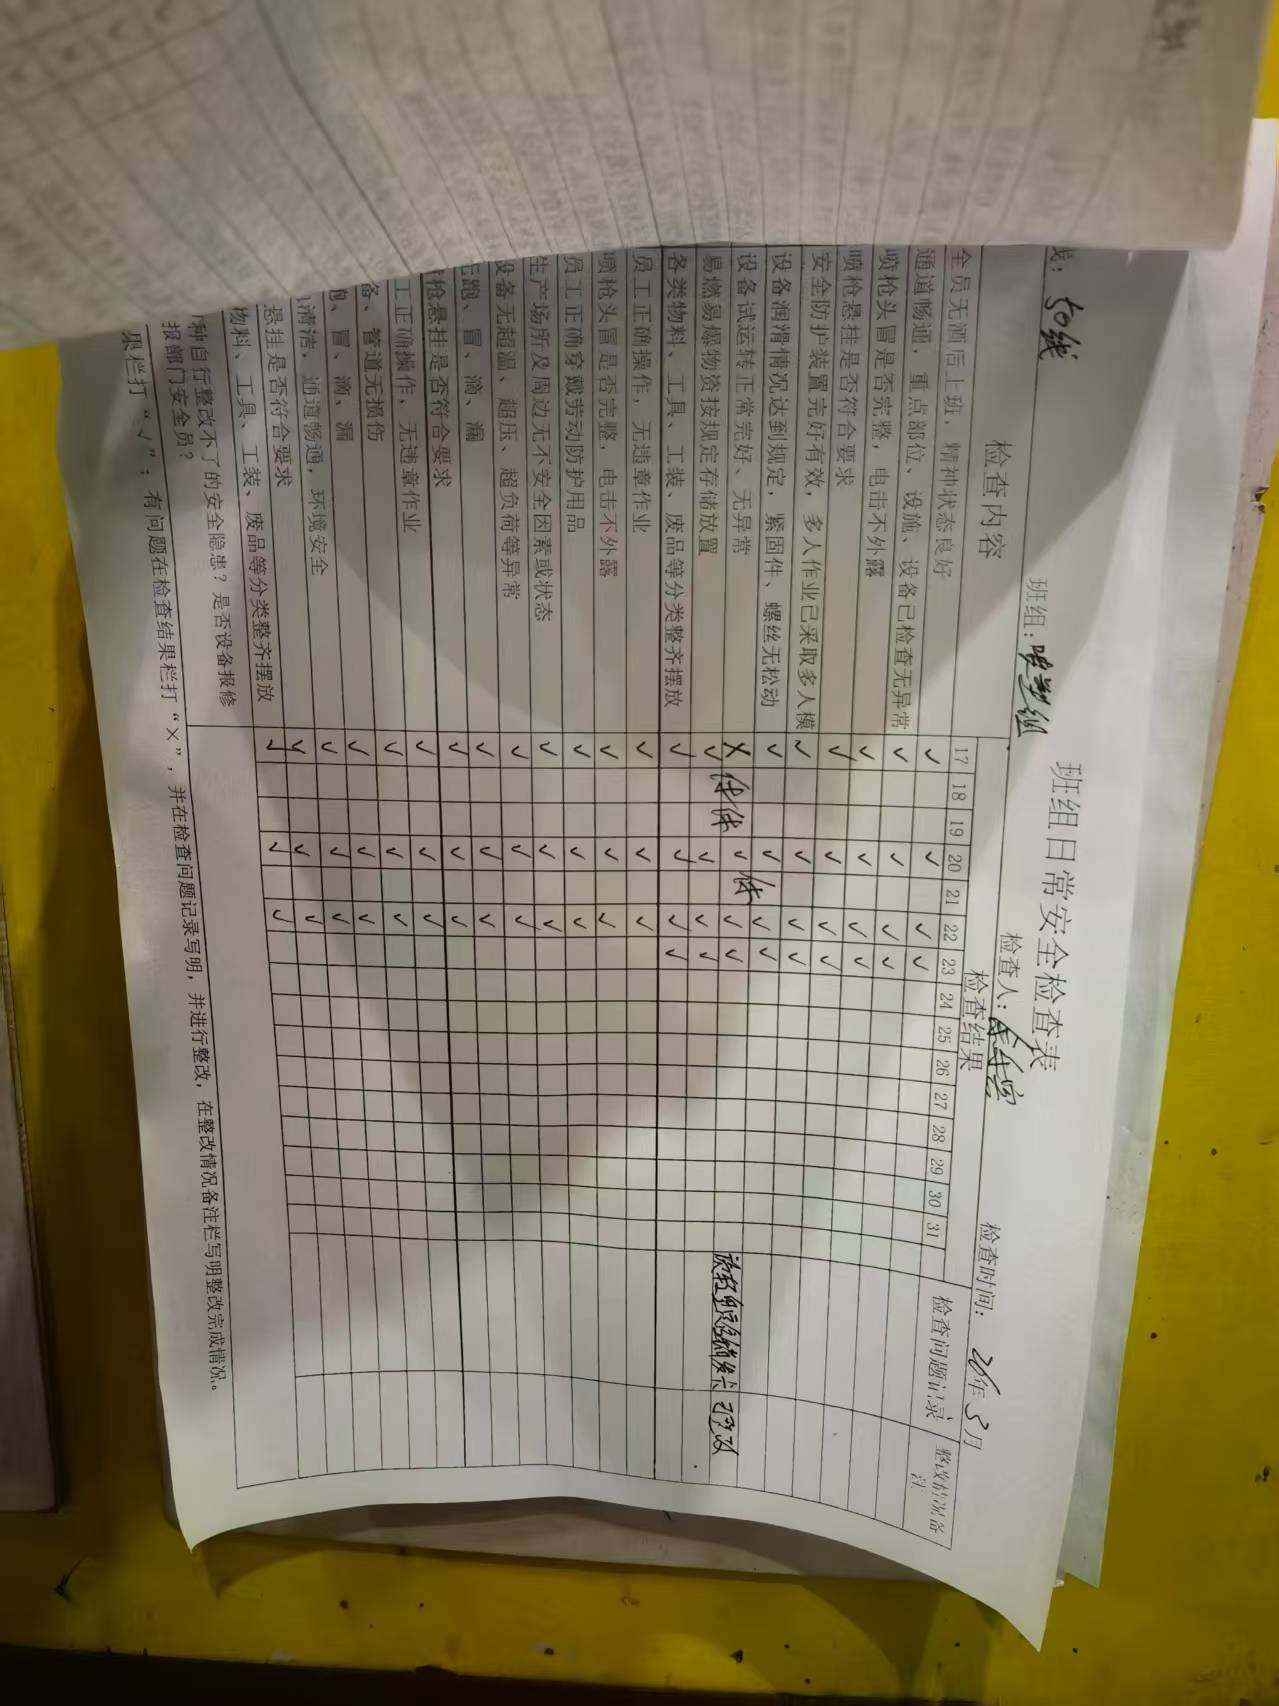 班组日常安全检查表
线：50线 班组：喷塑组 检查人： 检查时间：26年3月
检查内容 检查结果 检查问题记录 整改情况备注
17 18 19 20 21 22 23 24 25 26 27 28 29 30 31
全员无酒后上班，精神状态良好 ✓ ✓ ✓ ✓
通道畅通，重点部位、设施、设备已检查无异常 ✓ ✓ ✓ ✓
喷枪头冒是否完整，电击不外露 ✓ ✓ ✓ ✓
喷枪悬挂是否符合要求 ✓ ✓ ✓ ✓
安全防护装置完好有效，多人作业已采取多人模 ✓ ✓ ✓ ✓
设备润滑情况达到规定，紧固件、螺丝无松动 ✓ ✓ ✓ ✓
设备试运转正常完好、无异常 × 休 休 ✓ 休 ✓ ✓ 已整改
易燃易爆物资按规定存储放置 ✓ ✓ ✓ ✓
各类物料、工具、工装、废品等分类整齐摆放 ✓ ✓ ✓ ✓
员工正确操作，无违章作业 ✓ ✓ ✓
喷枪头冒是否完整，电击不外露 ✓ ✓ ✓
员工正确穿戴劳动防护用品 ✓ ✓ ✓
生产场所及周边无不安全因素或状态 ✓ ✓ ✓
设备无超温、超压、超负荷等异常 ✓ ✓ ✓
无跑、冒、滴、漏 ✓ ✓ ✓
枪悬挂是否符合要求 ✓ ✓ ✓
工正确操作，无违章作业 ✓ ✓ ✓
备、管道无损伤 ✓ ✓ ✓
跑、冒、滴、漏 ✓ ✓ ✓
清洁，通道畅通，环境安全 ✓ ✓ ✓
悬挂是否符合要求 ✓ ✓ ✓
物料、工具、工装、废品等分类整齐摆放 ✓ ✓ ✓
种自行整改不了的安全隐患？是否设备报修
报部门安全员？
果栏打“√”；有问题在检查结果栏打“×”，并在检查问题记录写明，并进行整改，在整改情况备注栏写明整改完成情况。